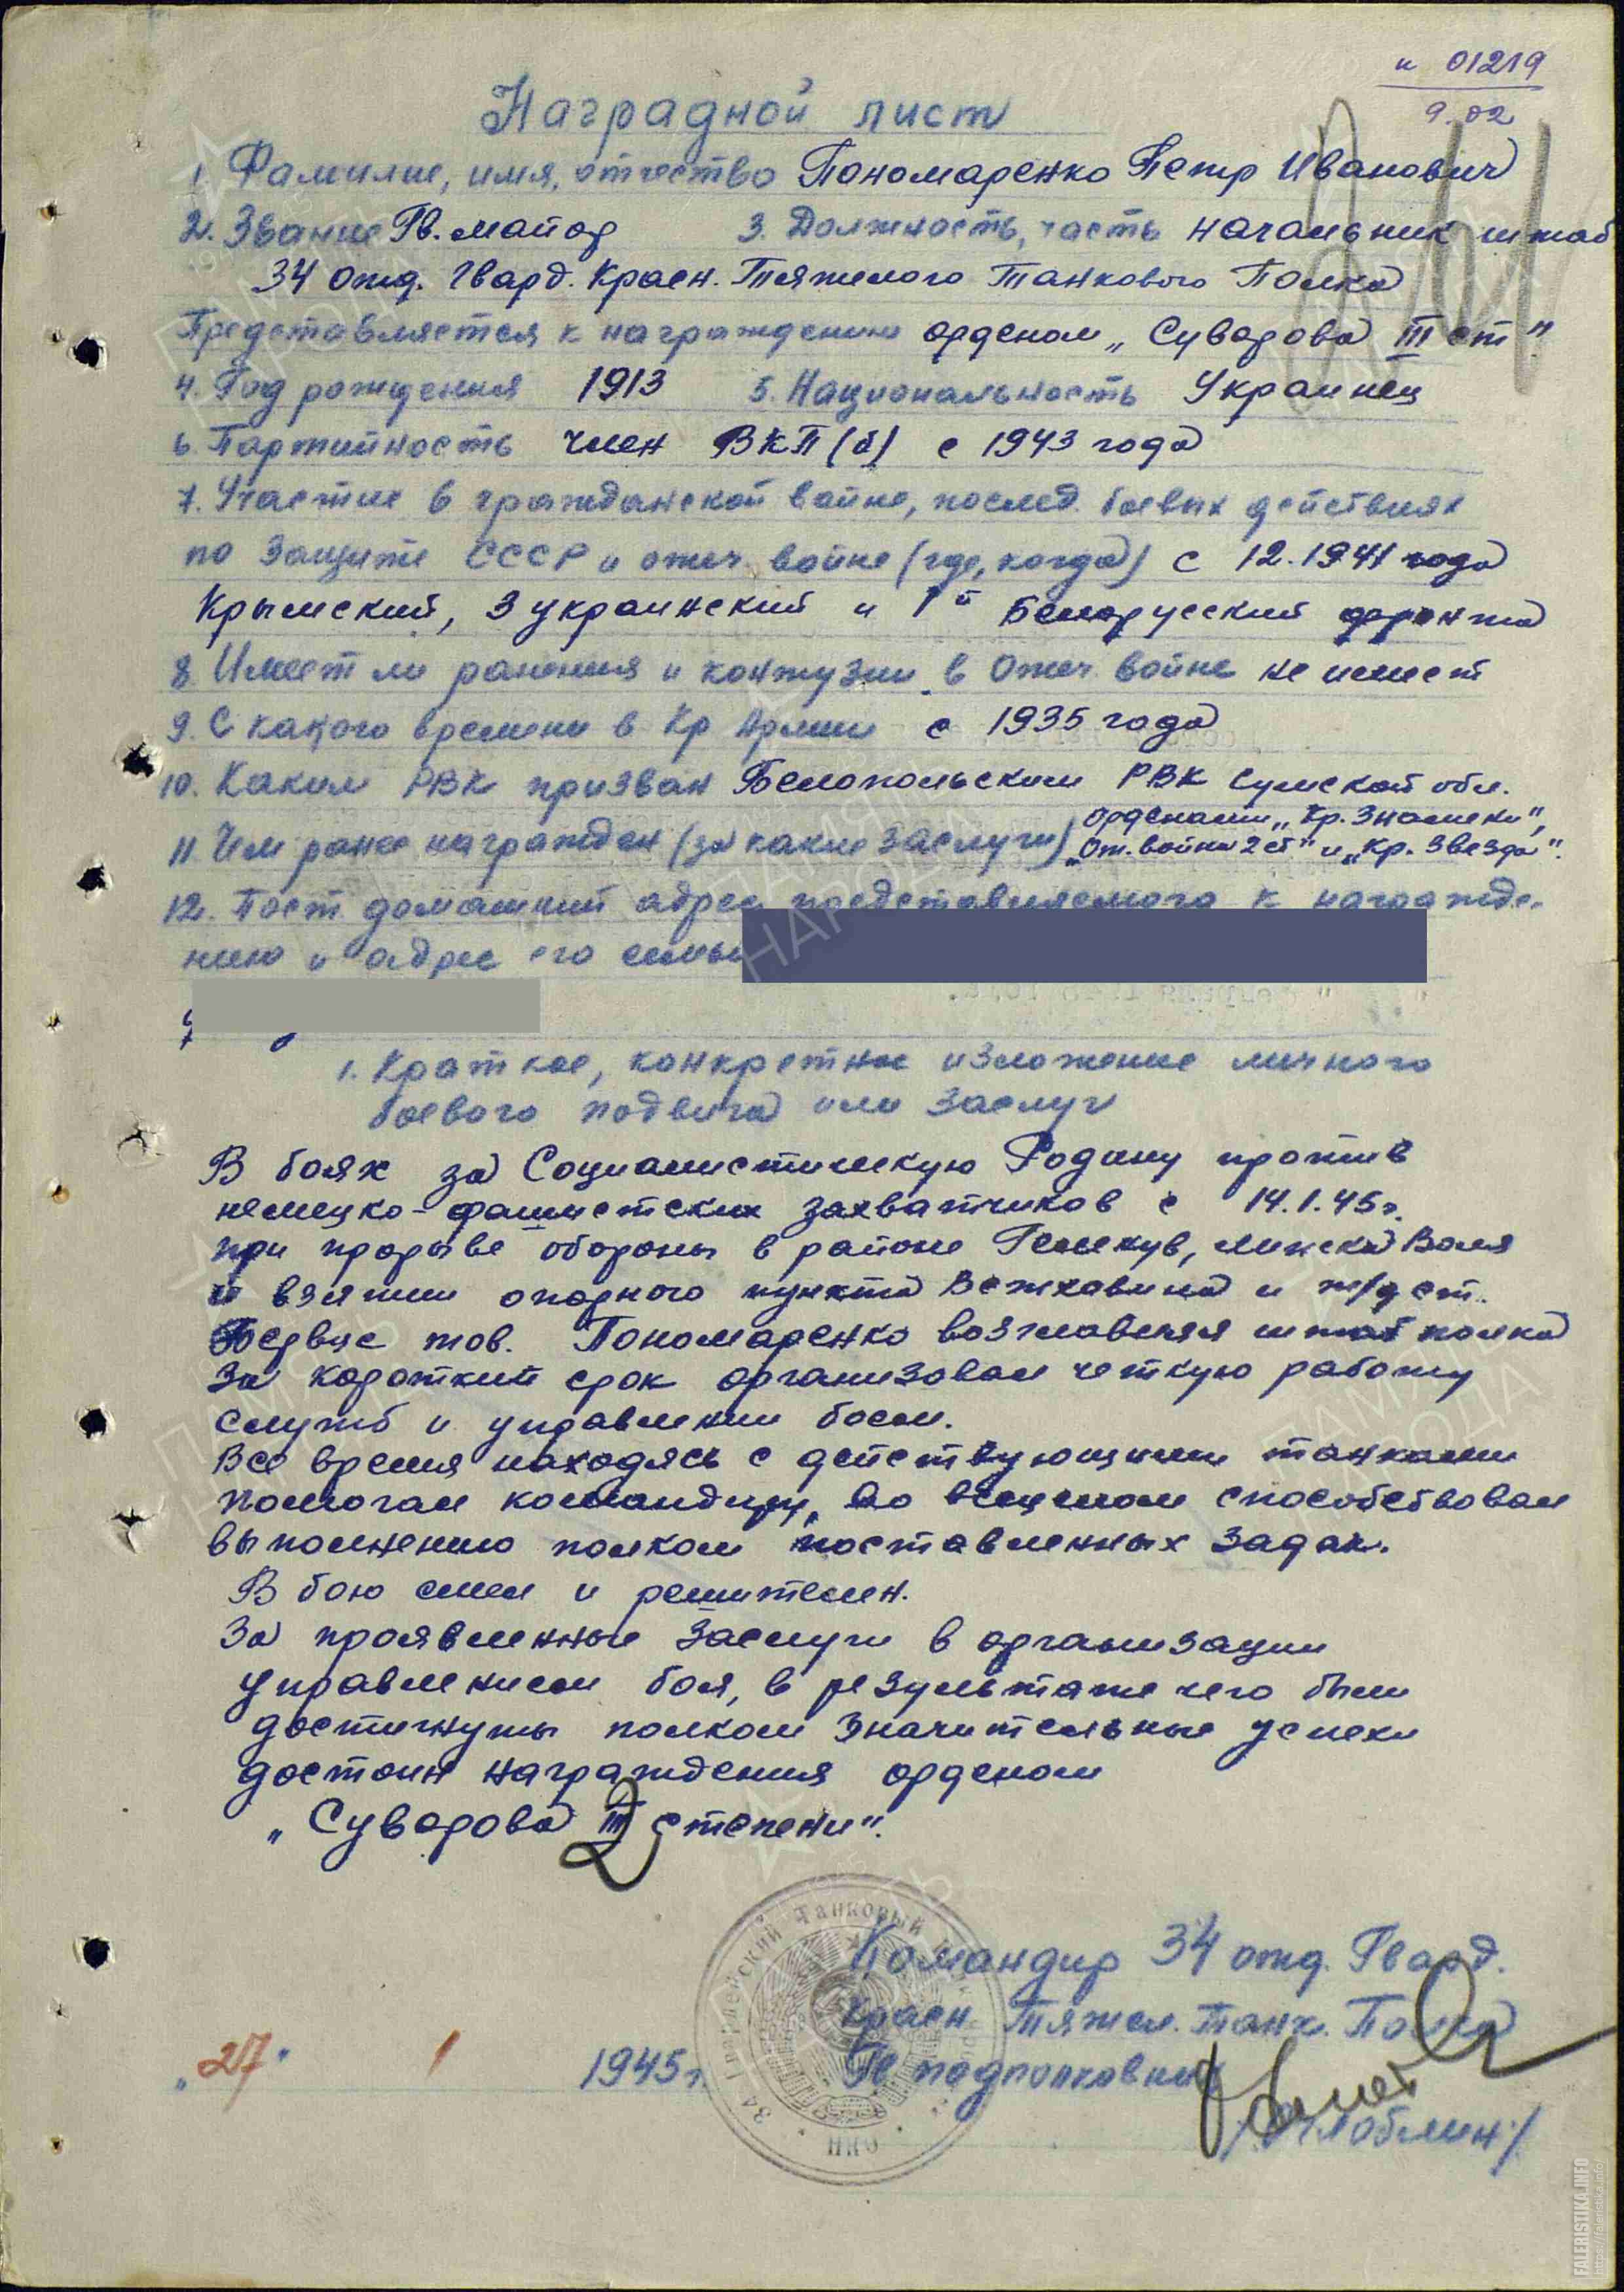 н 01219
9.02
Наградной лист
1. Фамилие, имя, отчество Пономаренко Петр Иванович
2. Звание Гв. майор 3. Должность, часть начальник штаб
34 Отд. Гвард. Красн. Тяжелого Танкового Полка
Представляется к награждению орденом „Суворова III ст"
4. Год рождения 1913 5. Национальность Украинец
6. Партийность член ВКП(б) с 1943 года
7. Участие в гражданской войне, послед. боевых действиях
по защите СССР и отеч. войне (где, когда) с 12.1941 года
Крымский, 3 украинский и 1й Белорусский фронта
8. Имеет ли ранения и контузии в Отеч. войне не имеет
9. С какого времени в Кр Армии с 1935 года
10. Каким РВК призван Белопольским РВК Сумской обл.
11. Чем ранее награжден (за какие заслуги) орденами „Кр. Знамени",
„От. войны 2 ст" и „Кр. Звезда".
12. Пост. домашний адрес представляемого к награжде-
нию и адрес его семьи
1. Краткое, конкретное изложение личного
боевого подвига или заслуг
В боях за Социалистическую Родину против
немецко-фашистских захватчиков с 14.1.45 г.
при прорыве обороны в районе Воля
и взятии опорного пункта и ж/д ст.
тов. Пономаренко возглавляя штаб полка
За короткий срок организовал четкую работу
служб и управлении боем.
Все время находясь с действующими танками
помогал командиру, способствовал
выполнению полком поставленных задач.
В бою смел и решителен.
За проявленные заслуги в организации
управлением боя, в результате чего были
достигнуты полком значительные успехи
достоин награждения орденом
„Суворова III степени".
2
Командир 34 отд. Гвард.
Красн. Тяжел. Танк. Полка
Гв подполковник
„27" 1 1945 г.
34 Гвардейский Танковый
НКО
ПАМЯТЬ НАРОДА
FALERISTIKA.INFO
https://faleristika.info